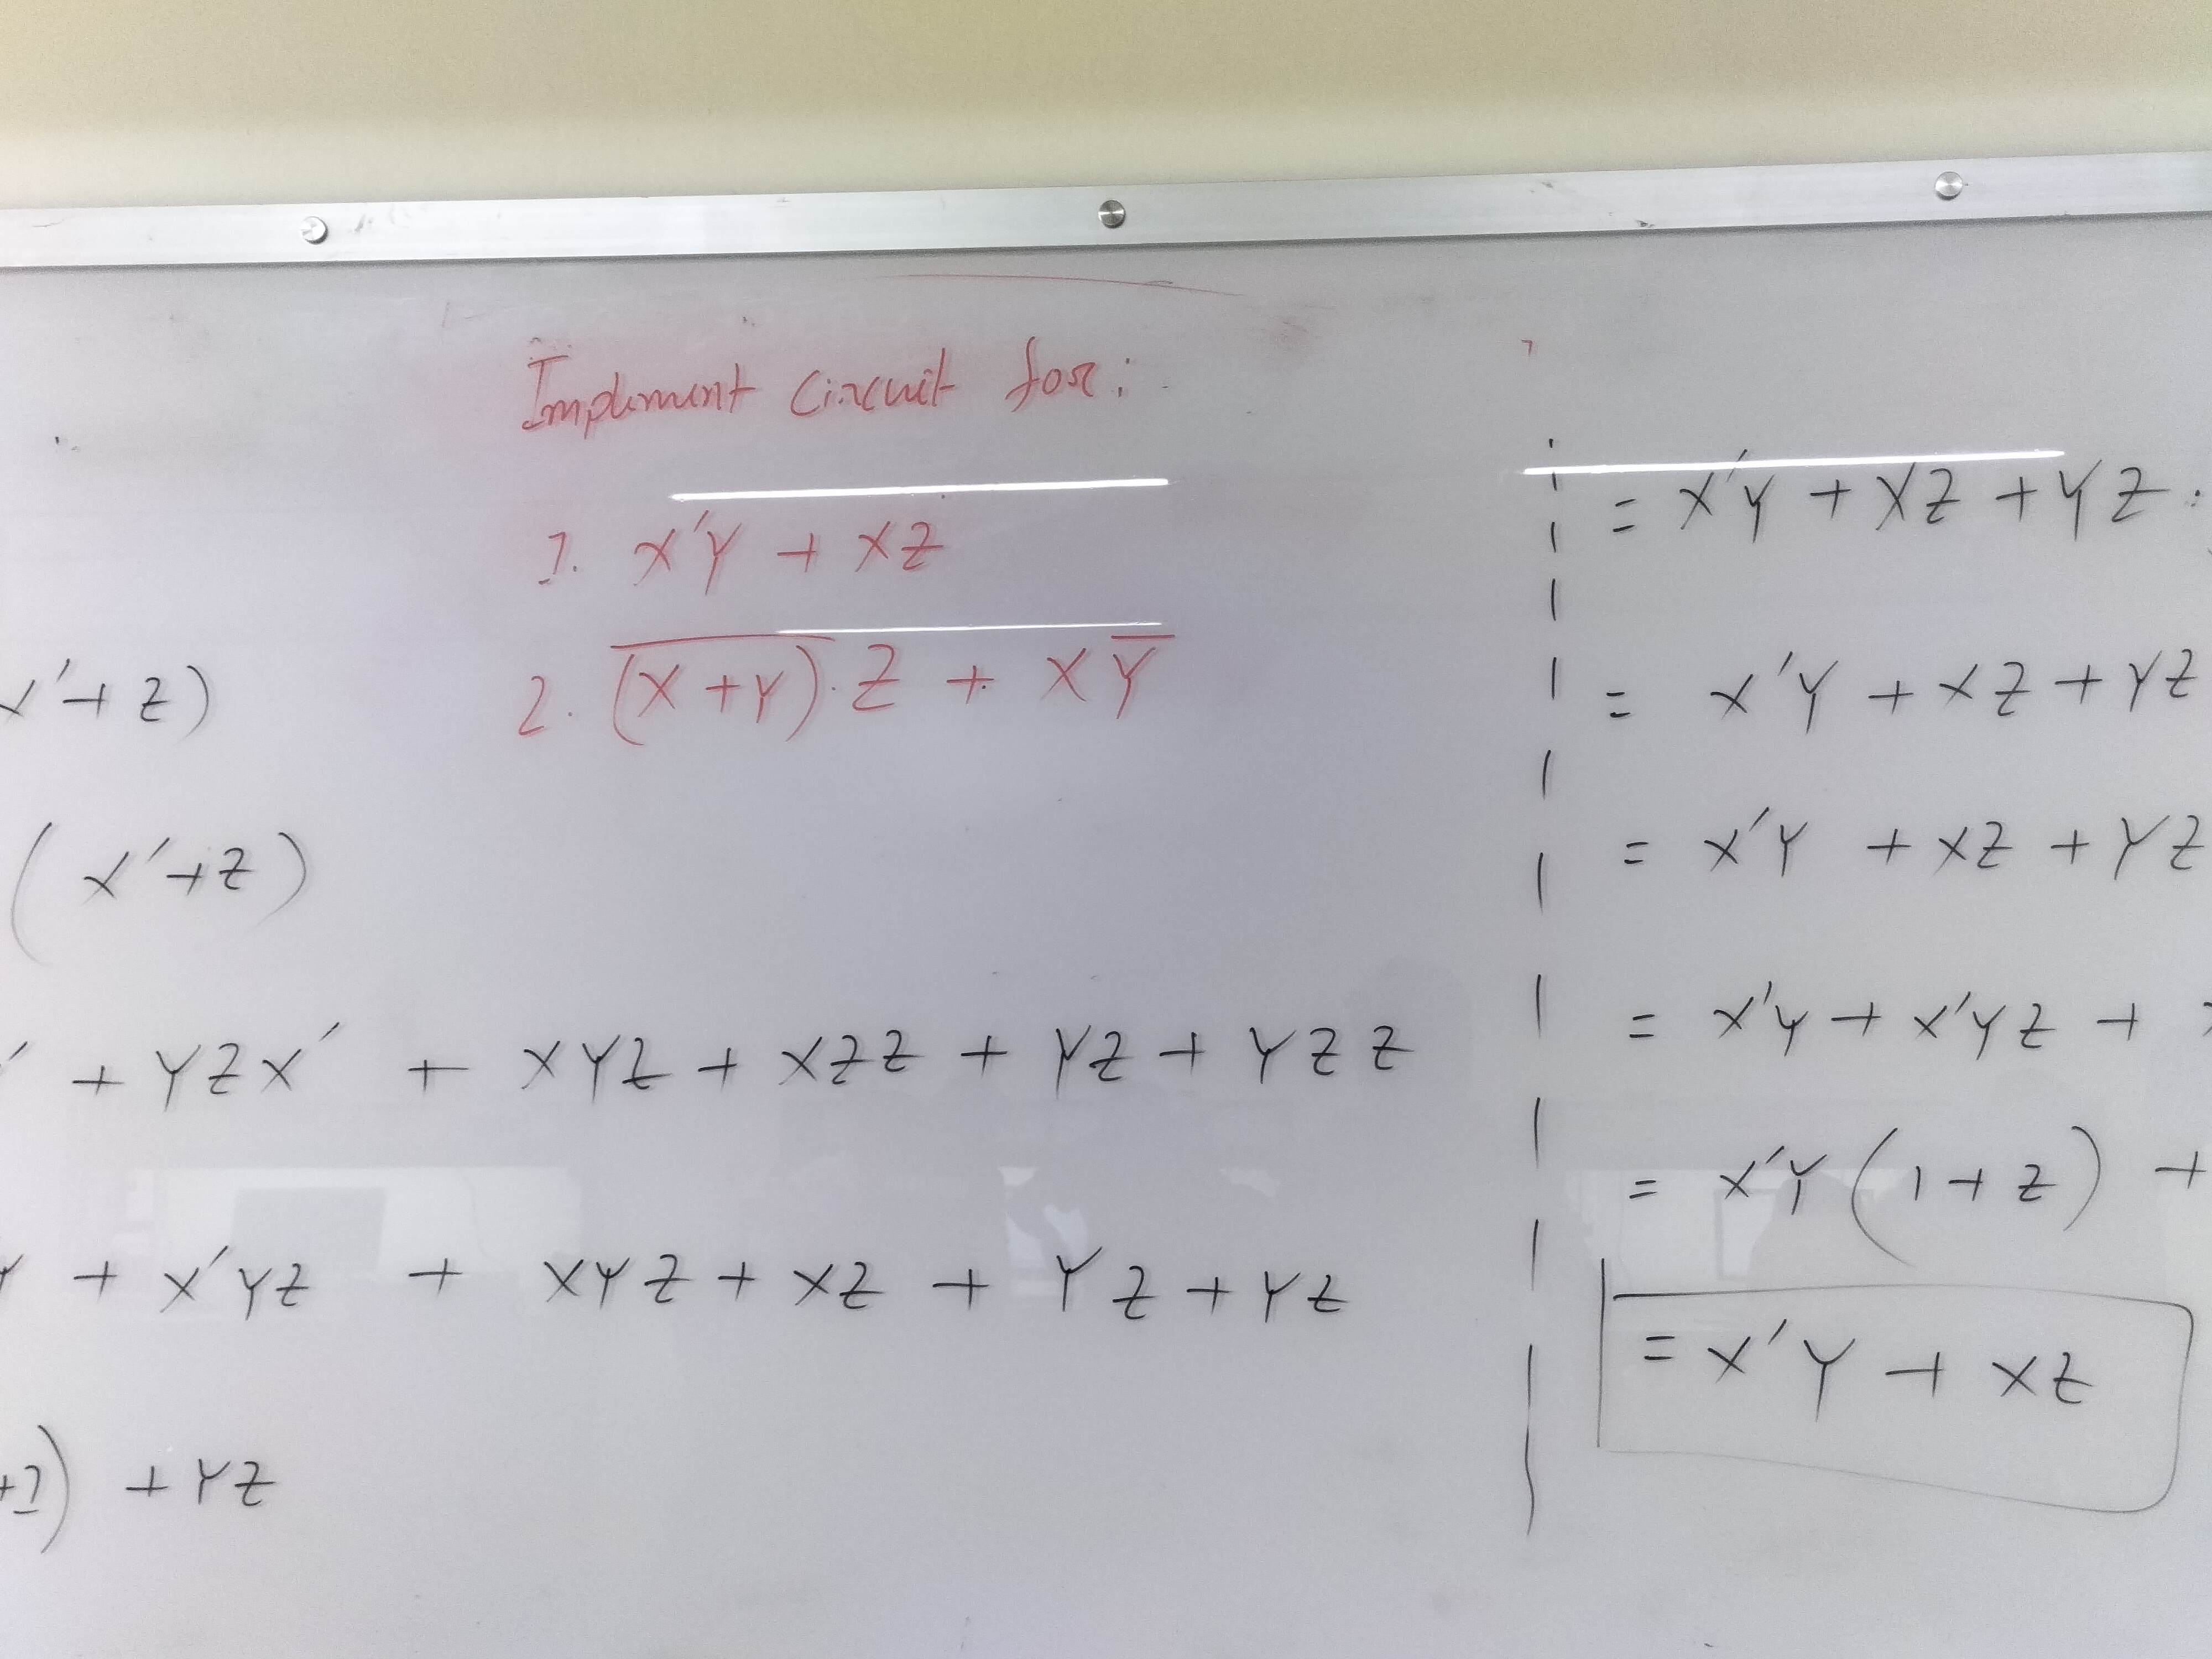 Implement Circuit for:
1. X'Y + XZ
2. \overline{(X+Y)}.Z + X\overline{Y}
X'+Z)
(X'+Z)
' + YZX' + XYZ + XZZ + YZ + YZZ
Y + X'YZ + XYZ + XZ + YZ + YZ
+1) + YZ
= X'Y + XZ + YZ.
= X'Y + XZ + YZ
= X'Y + XZ + YZ
= X'Y + X'YZ +
= X'Y(1+Z) +
= X'Y + XZ